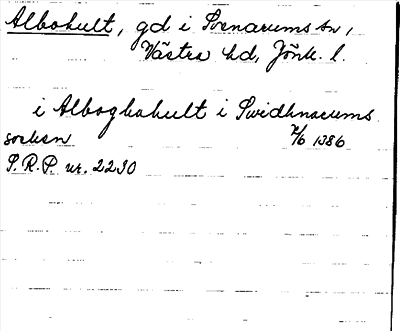 Albohult, gd i Svenarums sn,
Västra hd, Jönk. l.
i Alboghahult i Swidhnarums
socken 7/6 1386
S.R.P. nr. 2230